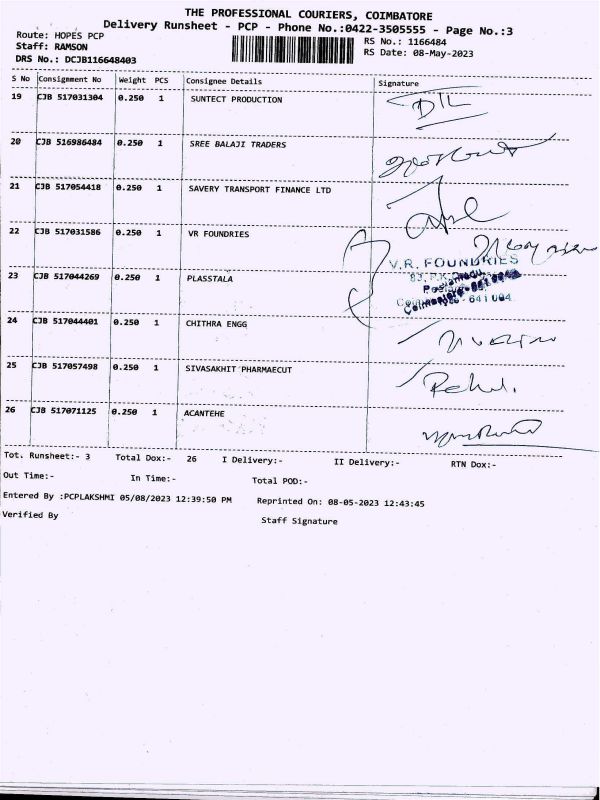 THE PROFESSIONAL COURIERS, COIMBATORE
Delivery Runsheet - PCP - Phone No.:0422-3505555 - Page No.:3
Route: HOPES PCP
Staff: RAMSON
DRS No.: DCJB116648403
RS No.: 1166484
RS Date: 08-May-2023
S No Consignment No Weight PCS Consignee Details Signature
19 CJB 517031304 0.250 1 SUNTECT PRODUCTION
20 CJB 516986484 0.250 1 SREE BALAJI TRADERS
21 CJB 517054418 0.250 1 SAVERY TRANSPORT FINANCE LTD
22 CJB 517031586 0.250 1 VR FOUNDRIES
V.R. FOUNDRIES
641 004
23 CJB 517044269 0.250 1 PLASSTALA
24 CJB 517044401 0.250 1 CHITHRA ENGG
25 CJB 517057498 0.250 1 SIVASAKHIT PHARMAECUT
26 CJB 517071125 0.250 1 ACANTEHE
Tot. Runsheet:- 3 Total Dox:- 26 I Delivery:- II Delivery:- RTN Dox:-
Out Time:- In Time:- Total POD:-
Entered By :PCPLAKSHMI 05/08/2023 12:39:50 PM Reprinted On: 08-05-2023 12:43:45
Verified By Staff Signature